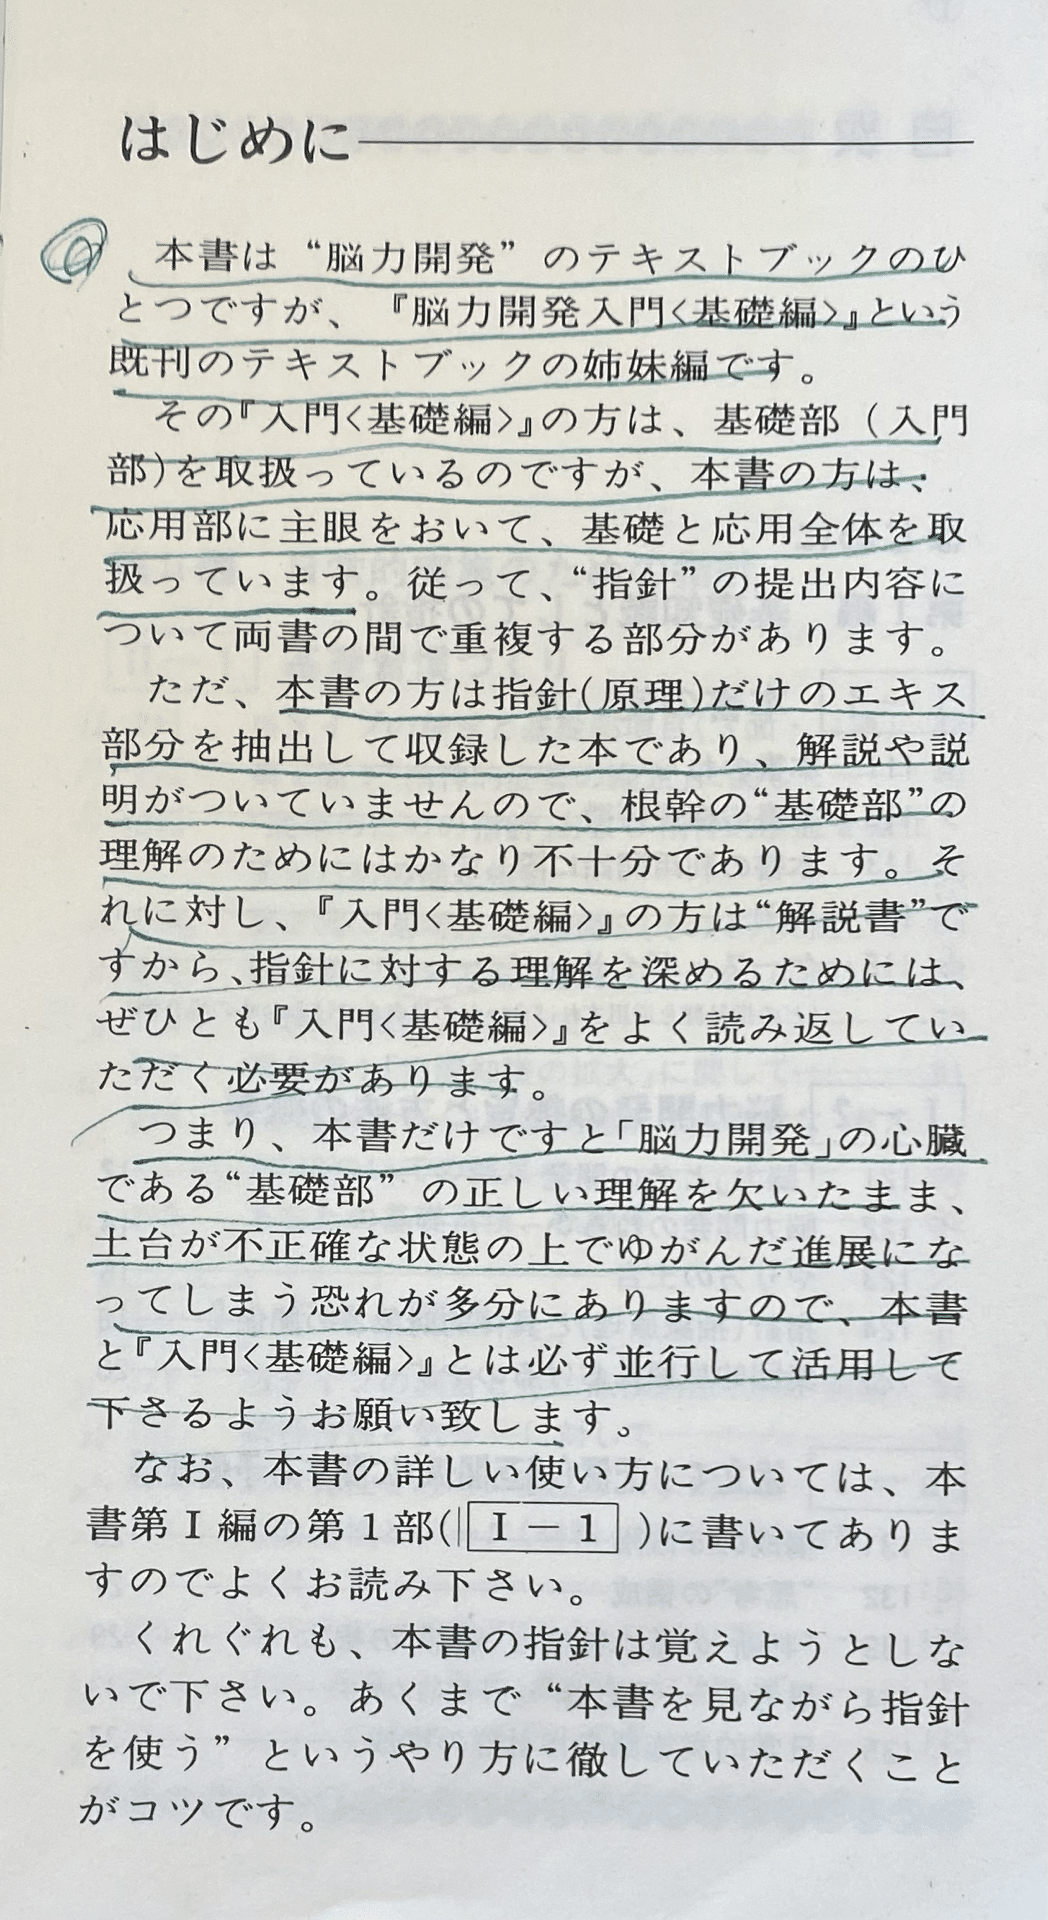 はじめに
本書は“脳力開発”のテキストブックのひ
とつですが、『脳力開発入門<基礎編>』という
既刊のテキストブックの姉妹編です。
その『入門<基礎編>』の方は、基礎部(入門
部)を取扱っているのですが、本書の方は、
応用部に主眼をおいて、基礎と応用全体を取
扱っています。従って、“指針”の提出内容に
ついて両書の間で重複する部分があります。
ただ、本書の方は指針(原理)だけのエキス
部分を抽出して収録した本であり、解説や説
明がついていませんので、根幹の“基礎部”の
理解のためにはかなり不十分であります。そ
れに対し、『入門<基礎編>』の方は“解説書”で
すから、指針に対する理解を深めるためには、
ぜひとも『入門<基礎編>』をよく読み返してい
ただく必要があります。
つまり、本書だけですと「脳力開発」の心臓
である“基礎部”の正しい理解を欠いたまま、
土台が不正確な状態の上でゆがんだ進展にな
ってしまう恐れが多分にありますので、本書
と『入門<基礎編>』とは必ず並行して活用して
下さるようお願い致します。
なお、本書の詳しい使い方については、本
書第Ⅰ編の第1部(Ⅰ−1)に書いてありま
すのでよくお読み下さい。
くれぐれも、本書の指針は覚えようとしな
いで下さい。あくまで“本書を見ながら指針
を使う”というやり方に徹していただくこと
がコツです。